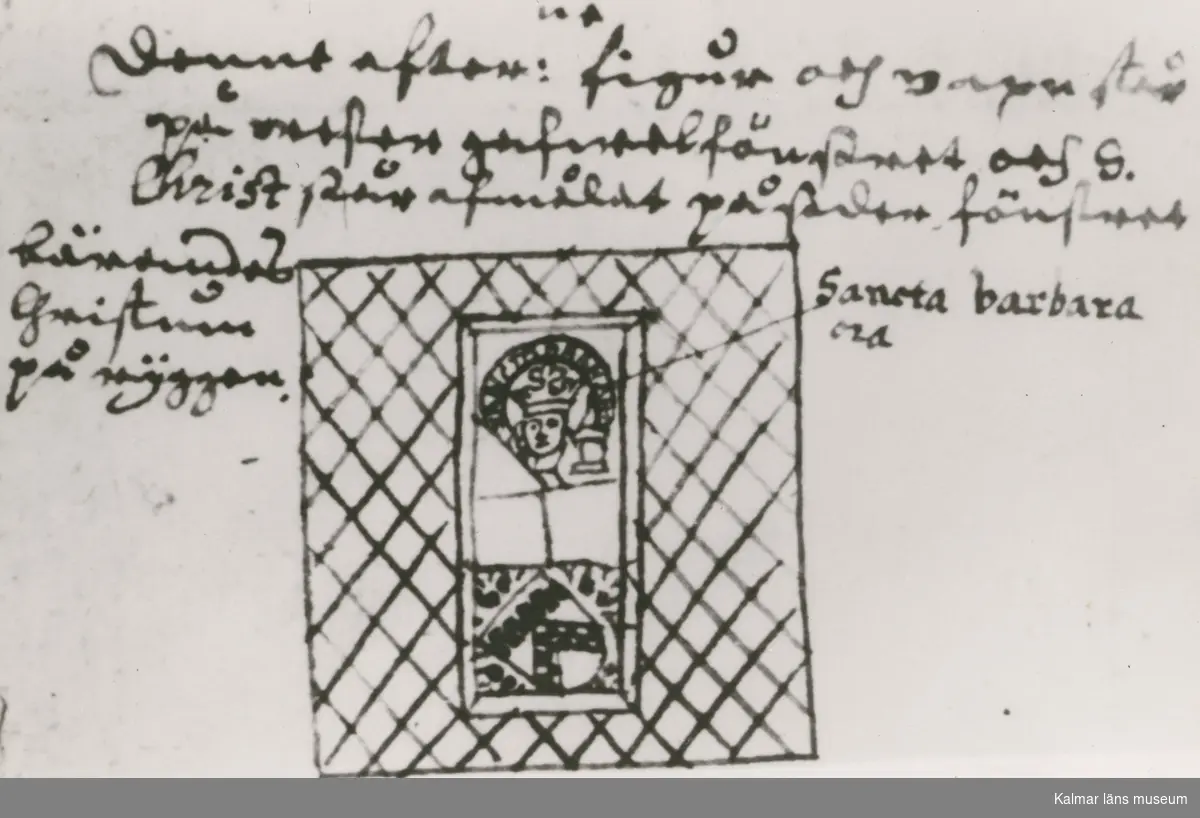 ne
Denne efter: figur och vapn står
på wester gafwelfönstret och S.
Christ står afmålat på seder fönstret
bärendes
Christum
på ryggen.
Sancta barbara
ora
Kalmar läns museum